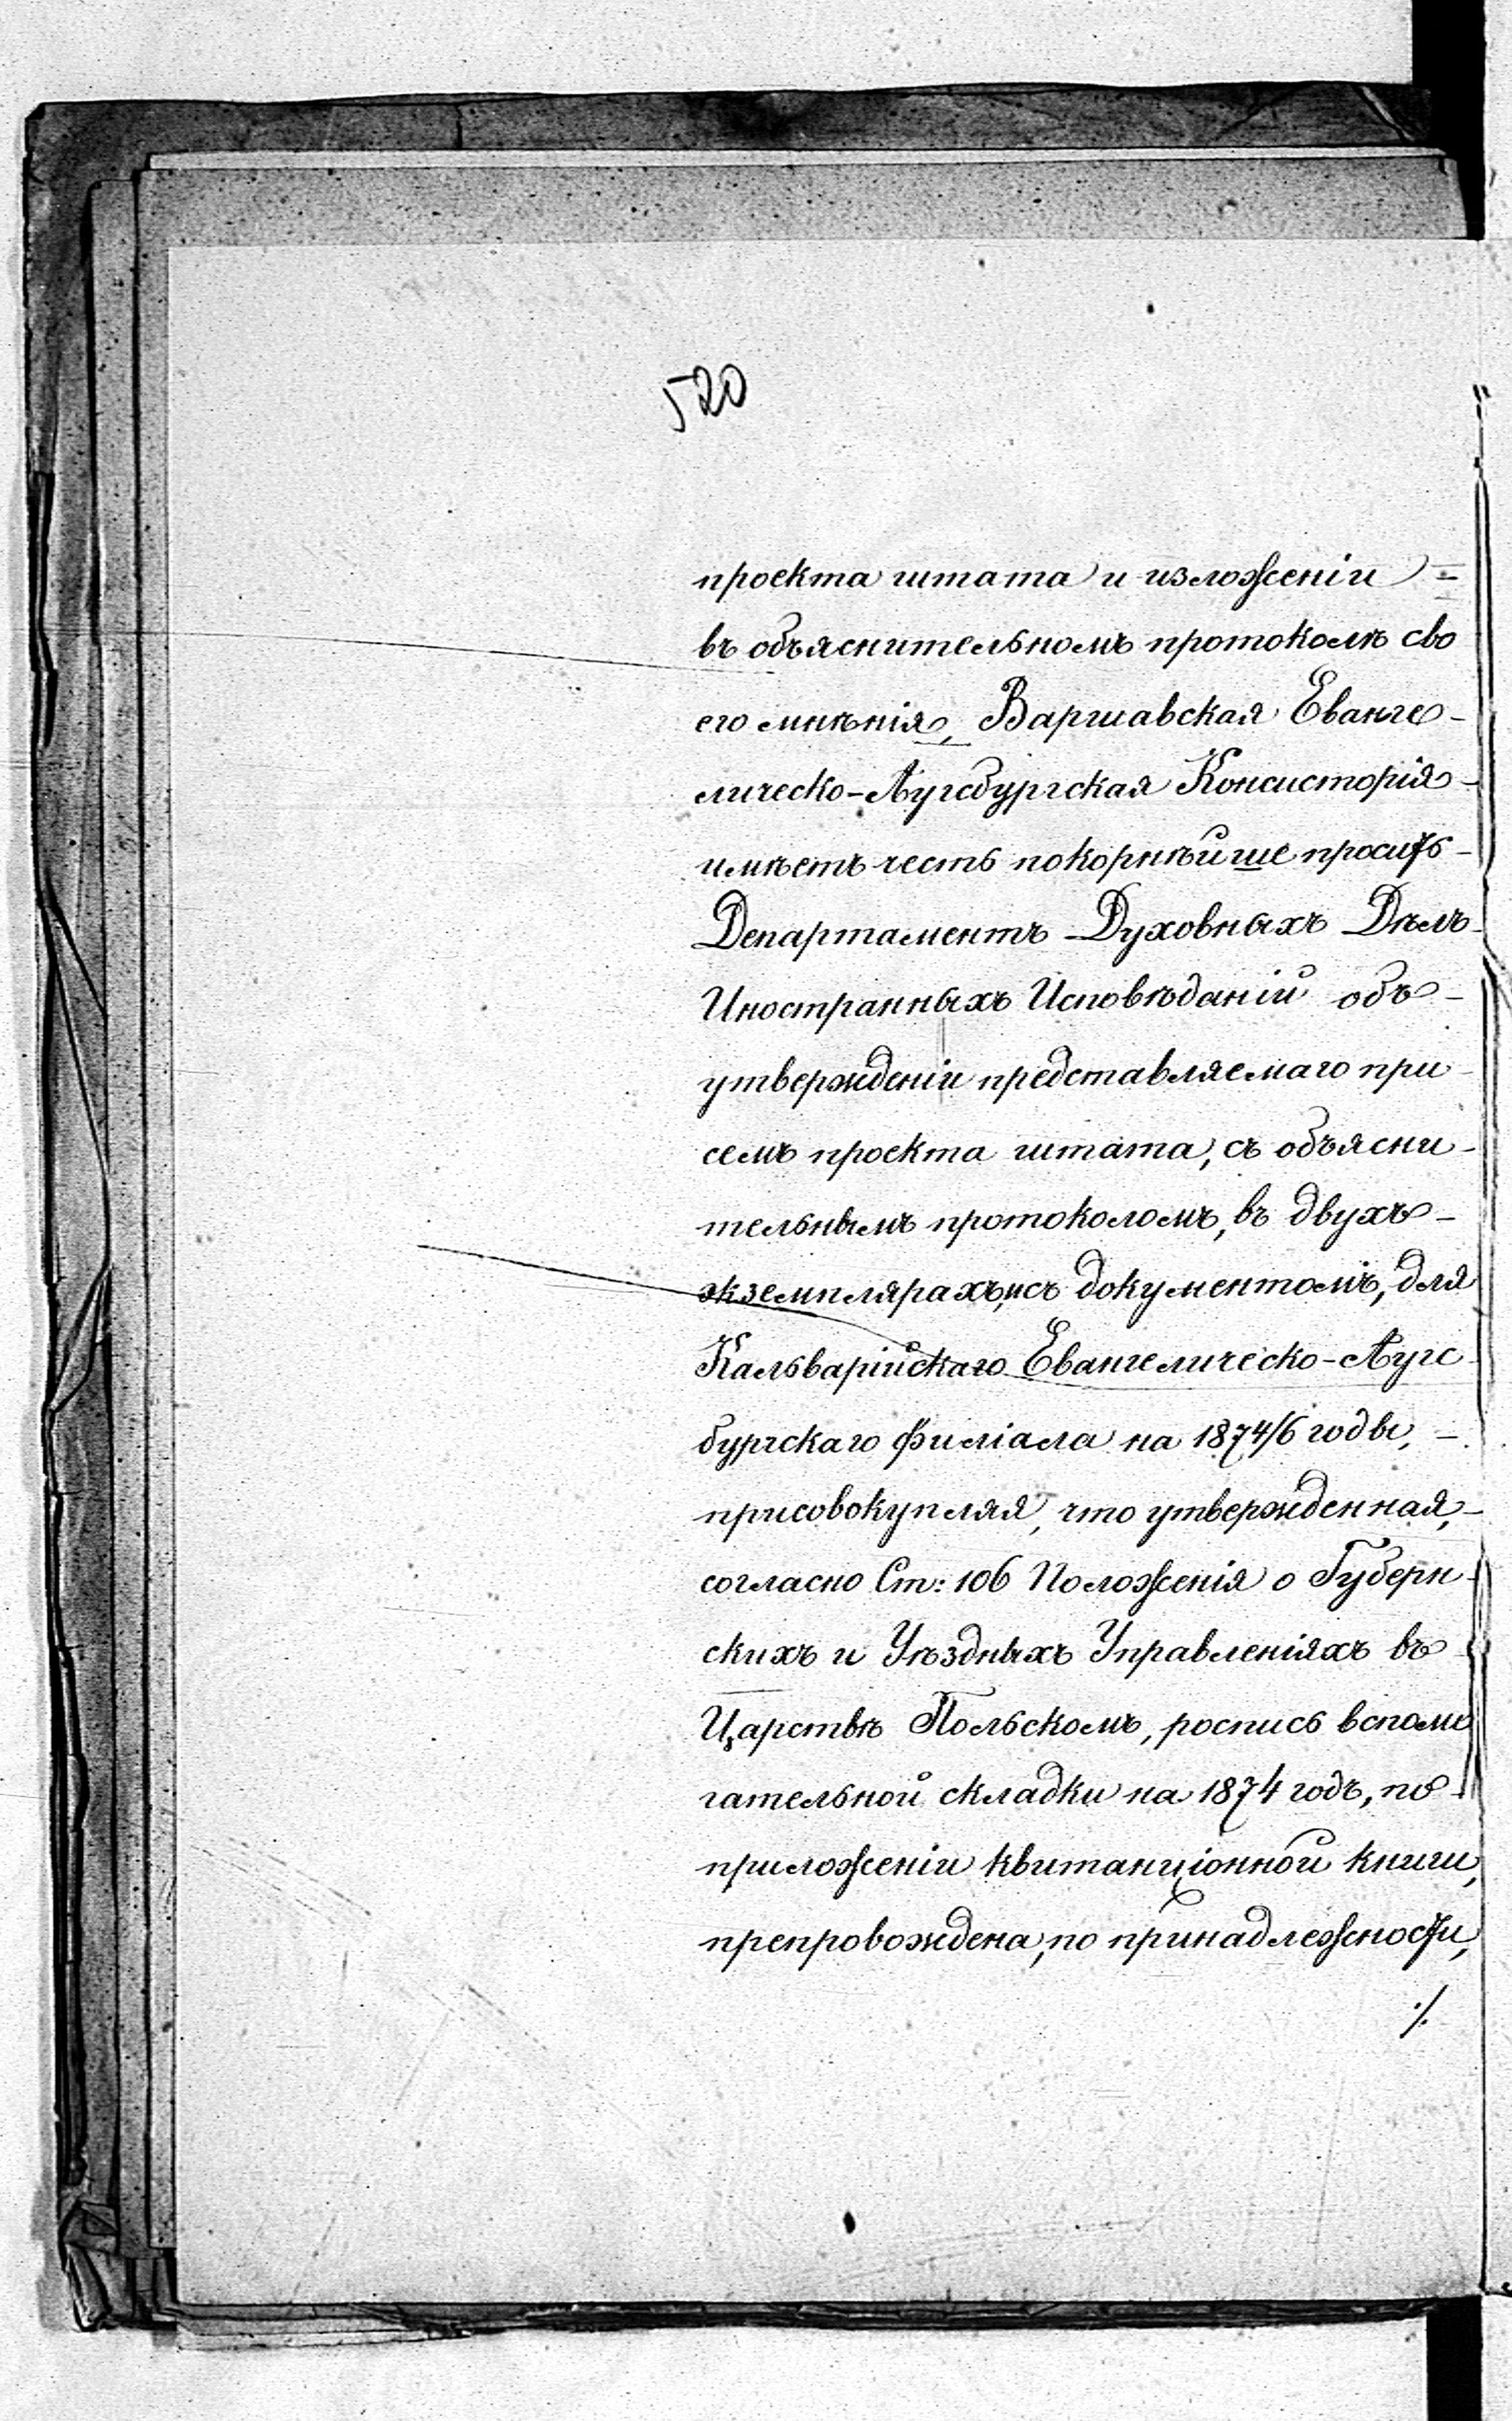 520
проекта штата и изложеніи =
въ объяснительномъ протоколѣ сво
его мнѣнія, Варшавская Еванге-
лическо-Аугсбургская Консисторія -
имѣетъ честь покорнѣйше просить -
Департаментъ Духовныхъ Дѣлъ -
Иностранныхъ Исповѣданій объ -
утвержденіи представляемаго при -
семъ проекта штата, съ объясни -
тельнымъ протоколомъ, въ двухъ -
экземплярахъ, и съ документомъ, для
Кальварійскаго Евангелическо-Аугс -
бургскаго Филіала на 1874/6 годы, -
присовокупляя, что утвержденная, -
согласно Ст: 106 Положенія о Губерн -
скихъ и Уѣздныхъ Управленіяхъ въ
Царствѣ Польскомъ, роспись вспомо
гательной складки на 1874 годъ, по -
приложеніи квитанціонной книги,
препровождена, по принадлежности,
./.